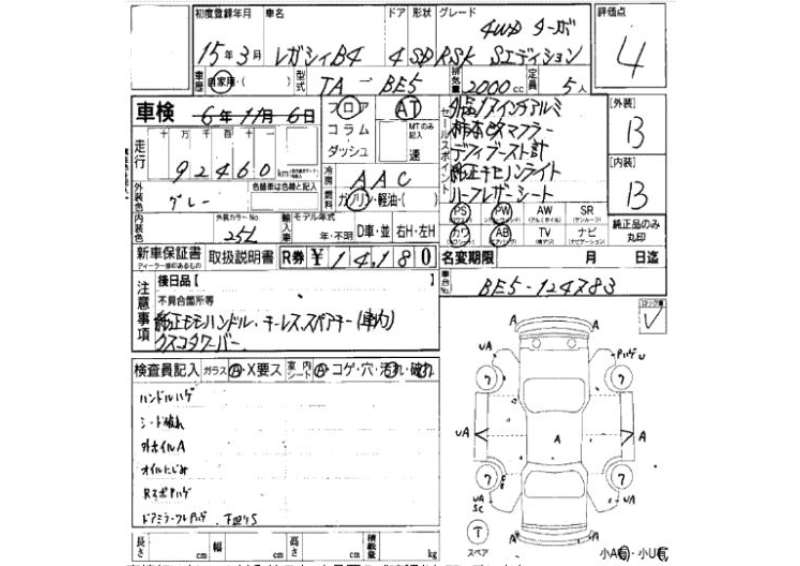 初度登録年月 車名 ドア 形状 グレード 評価点
15年3月 レガシィB4 4 SD RSK Sエディション 4WD ターボ 4
車歴 自家用・( ) 型式 TA-BE5 排気量 2000cc 定員 5人
車検 6年11月6日 フロア AT
コラム MTのみ記入
ダッシュ 速
走行 十万千百十一
92460 km
冷房 AAC
燃料 ガソリン・軽油・( )
セールスポイント 外品17インチアルミ
柿本改マフラー
デフィブースト計
純正キセノンライト
ハーフレザーシート
[外装] B
[内装] B
外装色 グレー 色替車は色替と記入
内装色 外装カラーNo 25L
輸入車 モデル年式 年・不明 D車・並 右H・左H
PS PW AW SR
カワ AB TV ナビ
純正品のみ丸印
新車保証書 取扱説明書 R券 ¥14,180
ディーラー印のあるもの
名変期限 月 日迄
車台No. BE5-124783
注意事項 後日品【 】
不具合箇所等
純正モモハンドル.キーレス.スペアキー(車内)
クスコタワーバー.
検査員記入 ガラス A・X要ス 室内シート A・コゲ・穴・汚れ・破れ
ハンドルハゲ
シート破れ
外ホイルA
オイルにじみ
RスポAハゲ
ドアミラー・フレAハゲ . 下廻りS
A A
UA Pハゲ U
7 7
UA A A
7 7
UA SC UA
T
スペア
A A
小A有・小U有
長さ cm 幅 cm 高さ cm 積載量 kg